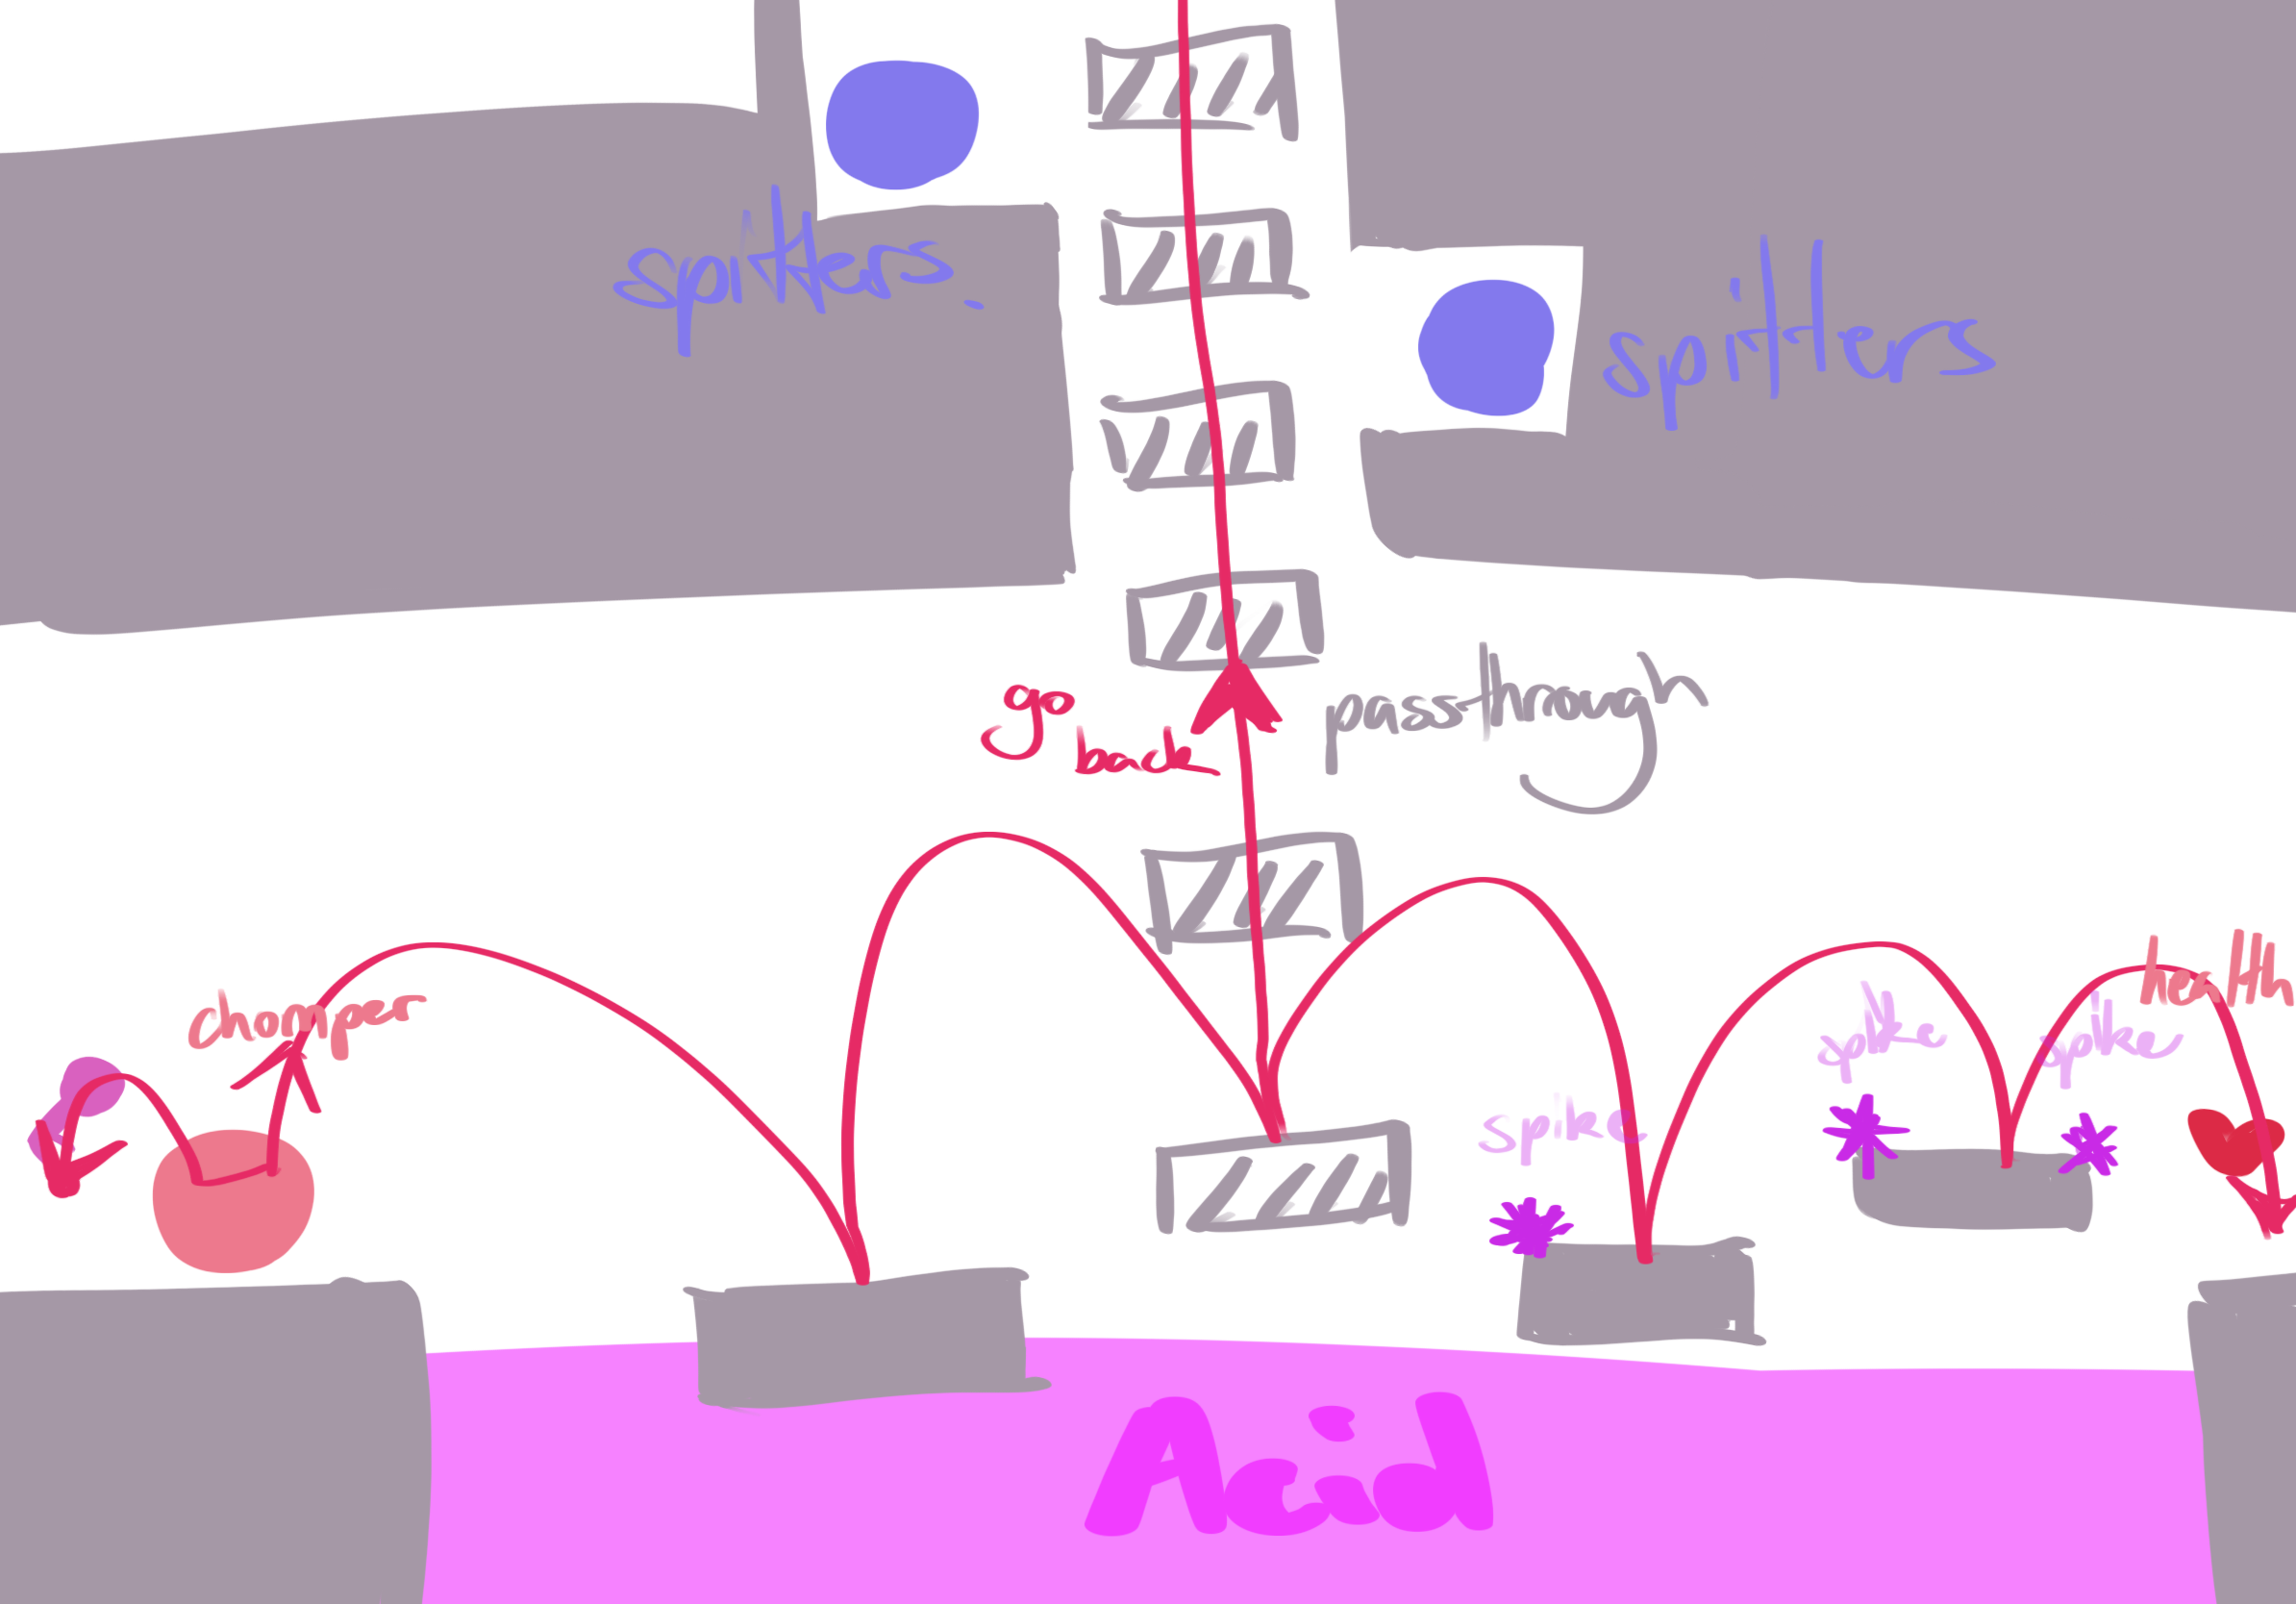 spitters
spitters
go
back
passthrough
chomper
health
spike
spike
spike
Acid